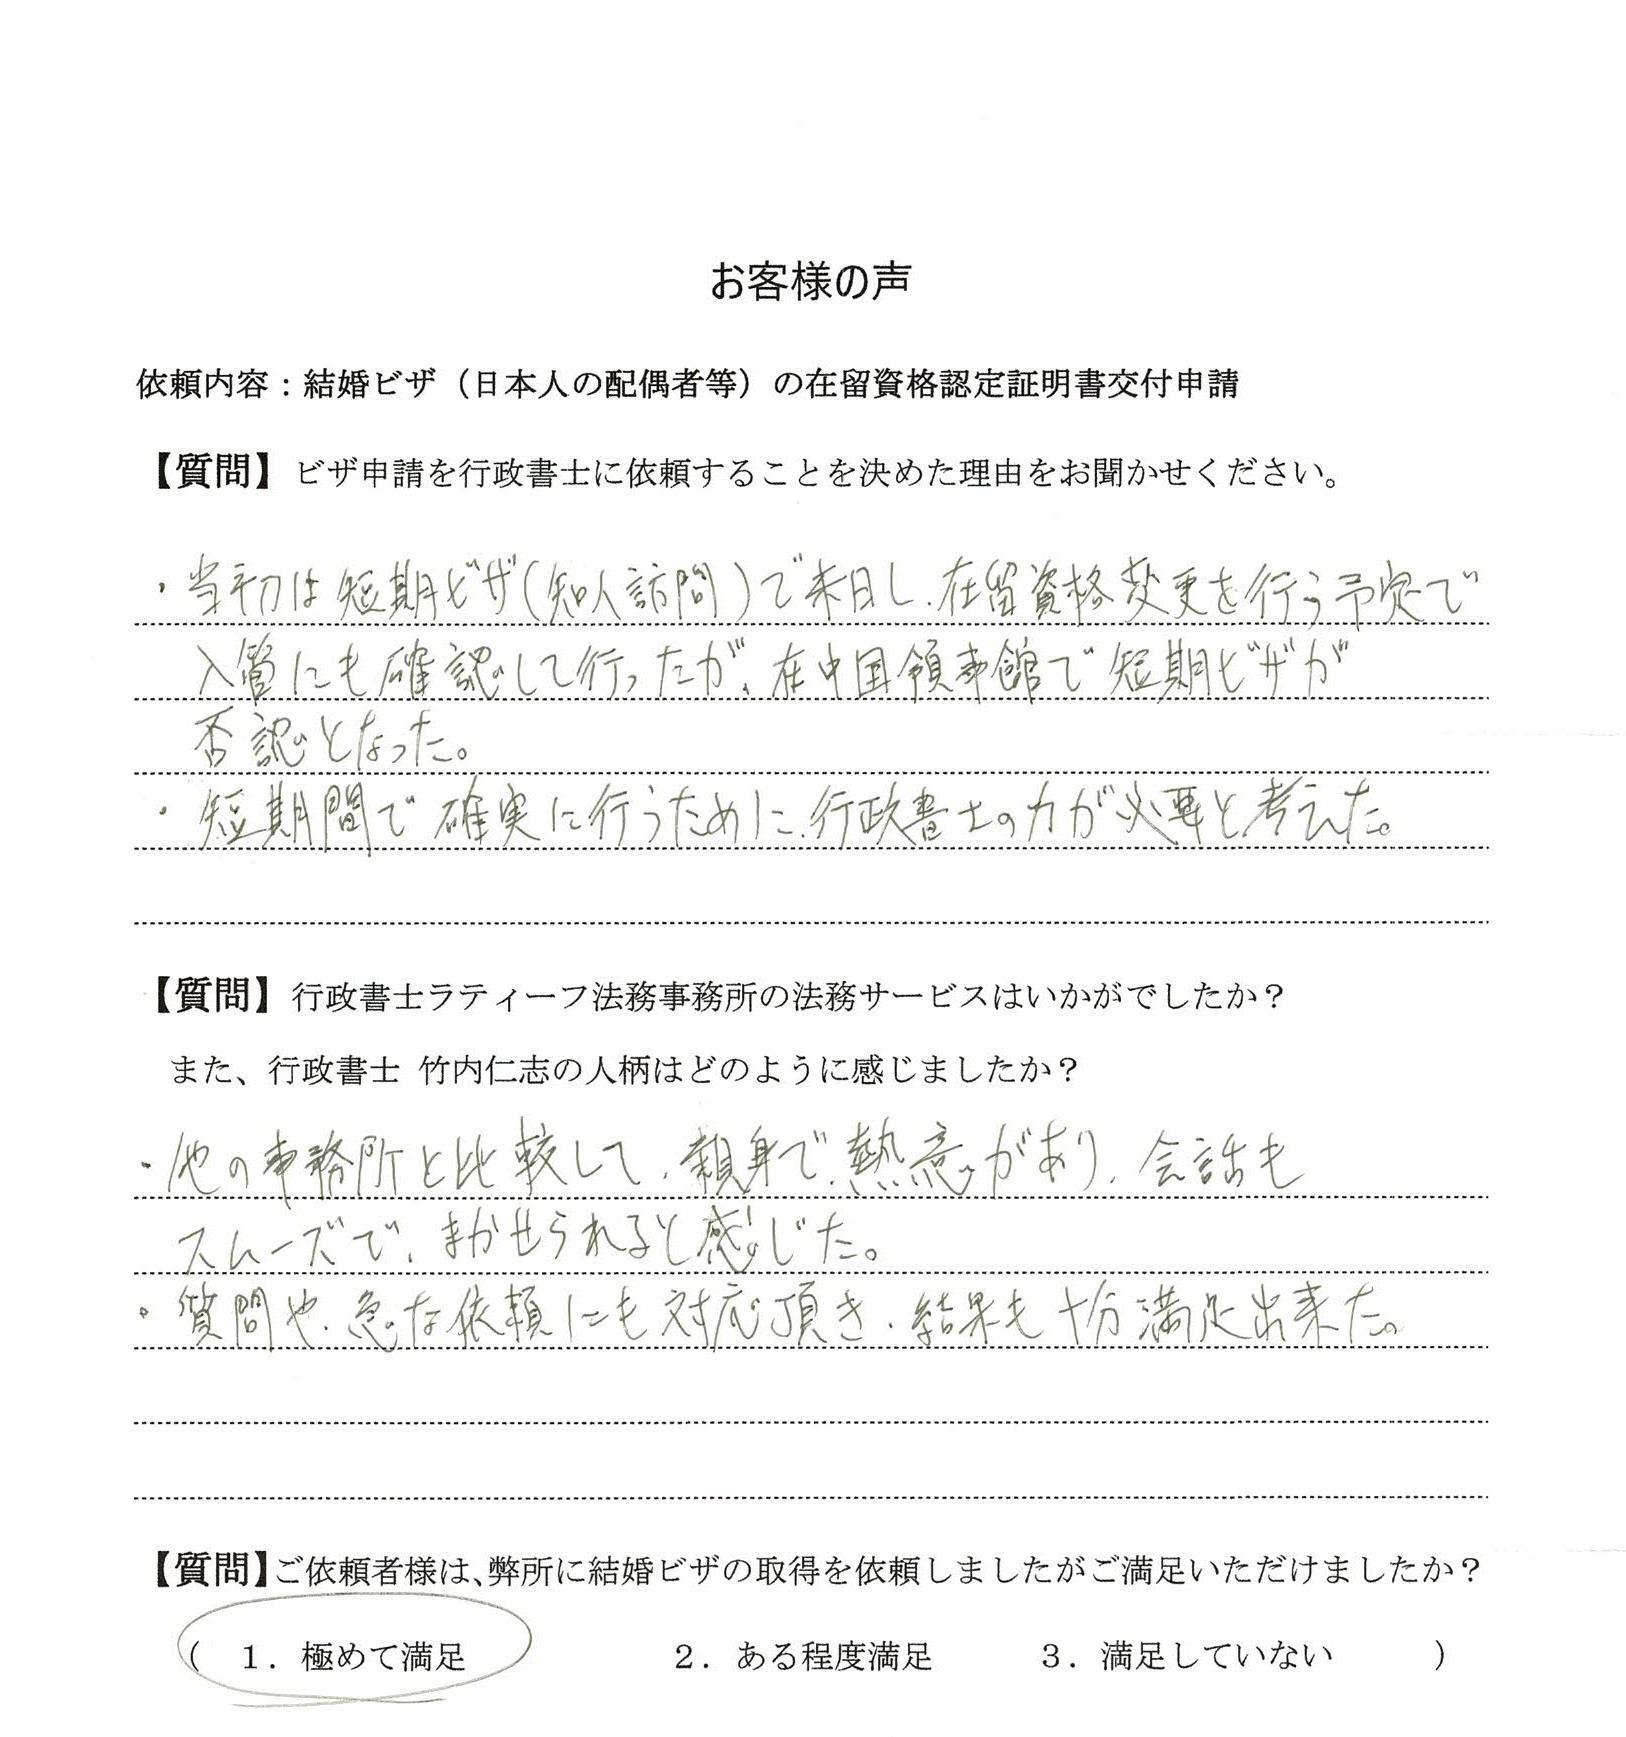 お客様の声
依頼内容：結婚ビザ（日本人の配偶者等）の在留資格認定証明書交付申請
【質問】ビザ申請を行政書士に依頼することを決めた理由をお聞かせください。
・当初は短期ビザ(知人訪問)で来日し、在留資格変更を行う予定で
入管にも確認して行ったが、在中国領事館で短期ビザが
否認となった。
・短期間で確実に行うために、行政書士の力が必要と考えた。
【質問】行政書士ラティーフ法務事務所の法務サービスはいかがでしたか？
また、行政書士 竹内仁志の人柄はどのように感じましたか？
・他の事務所と比較して、親身で、熱意があり、会話も
スムーズで、まかせられると感じた。
・質問や、急な依頼にも対応頂き、結果も十分満足出来た。
【質問】ご依頼者様は、弊所に結婚ビザの取得を依頼しましたがご満足いただけましたか？
（ 1．極めて満足 2．ある程度満足 3．満足していない ）